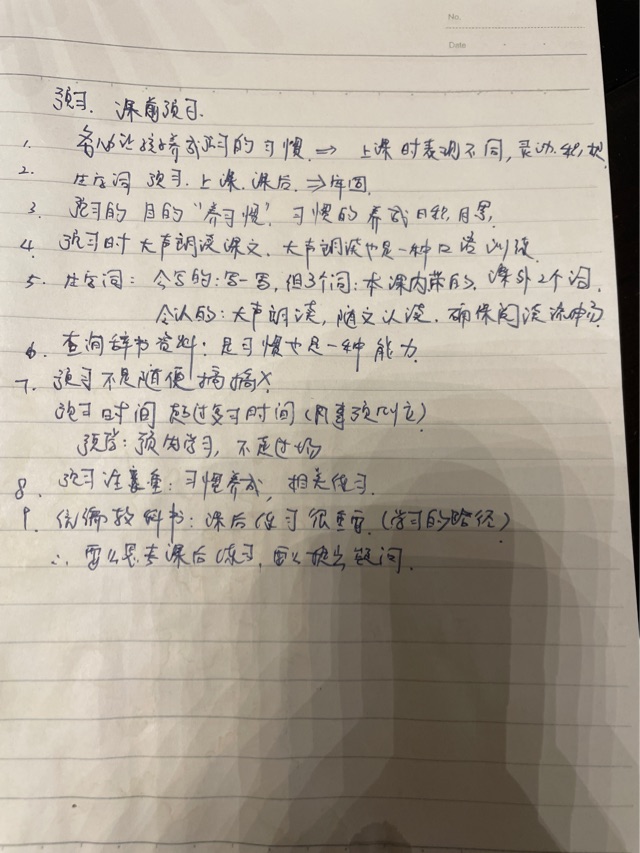 No.
Date
预习. 课前预习.
1. 务必让孩子养成预习的习惯. ⇒ 上课时表现不同, 灵动. 积极.
2. 生字词 预习. 上课. 课后. ⇒ 牢固.
3. 预习的目的 "养习惯". 习惯的养成日积月累.
4. 预习时大声朗读课文. 大声朗读也是一种口语训练.
5. 生字词: 会写的: 写一写, 但3个词: 本课内带的, 课外2个词.
会认的: 大声朗读, 随文认读. 确保阅读流畅
6. 查阅辞书资料: 是习惯也是一种能力.
7. 预习不是随便搞搞X
预习时间超过复习时间 (凡事预则立)
预学: 预先学习, 不走过场
8. 预习注意重: 习惯养成, 相关练习.
9. 统编教科书: 课后练习很重要. (学习的路径)
∴ 要么思考课后练习, 要么提出疑问.